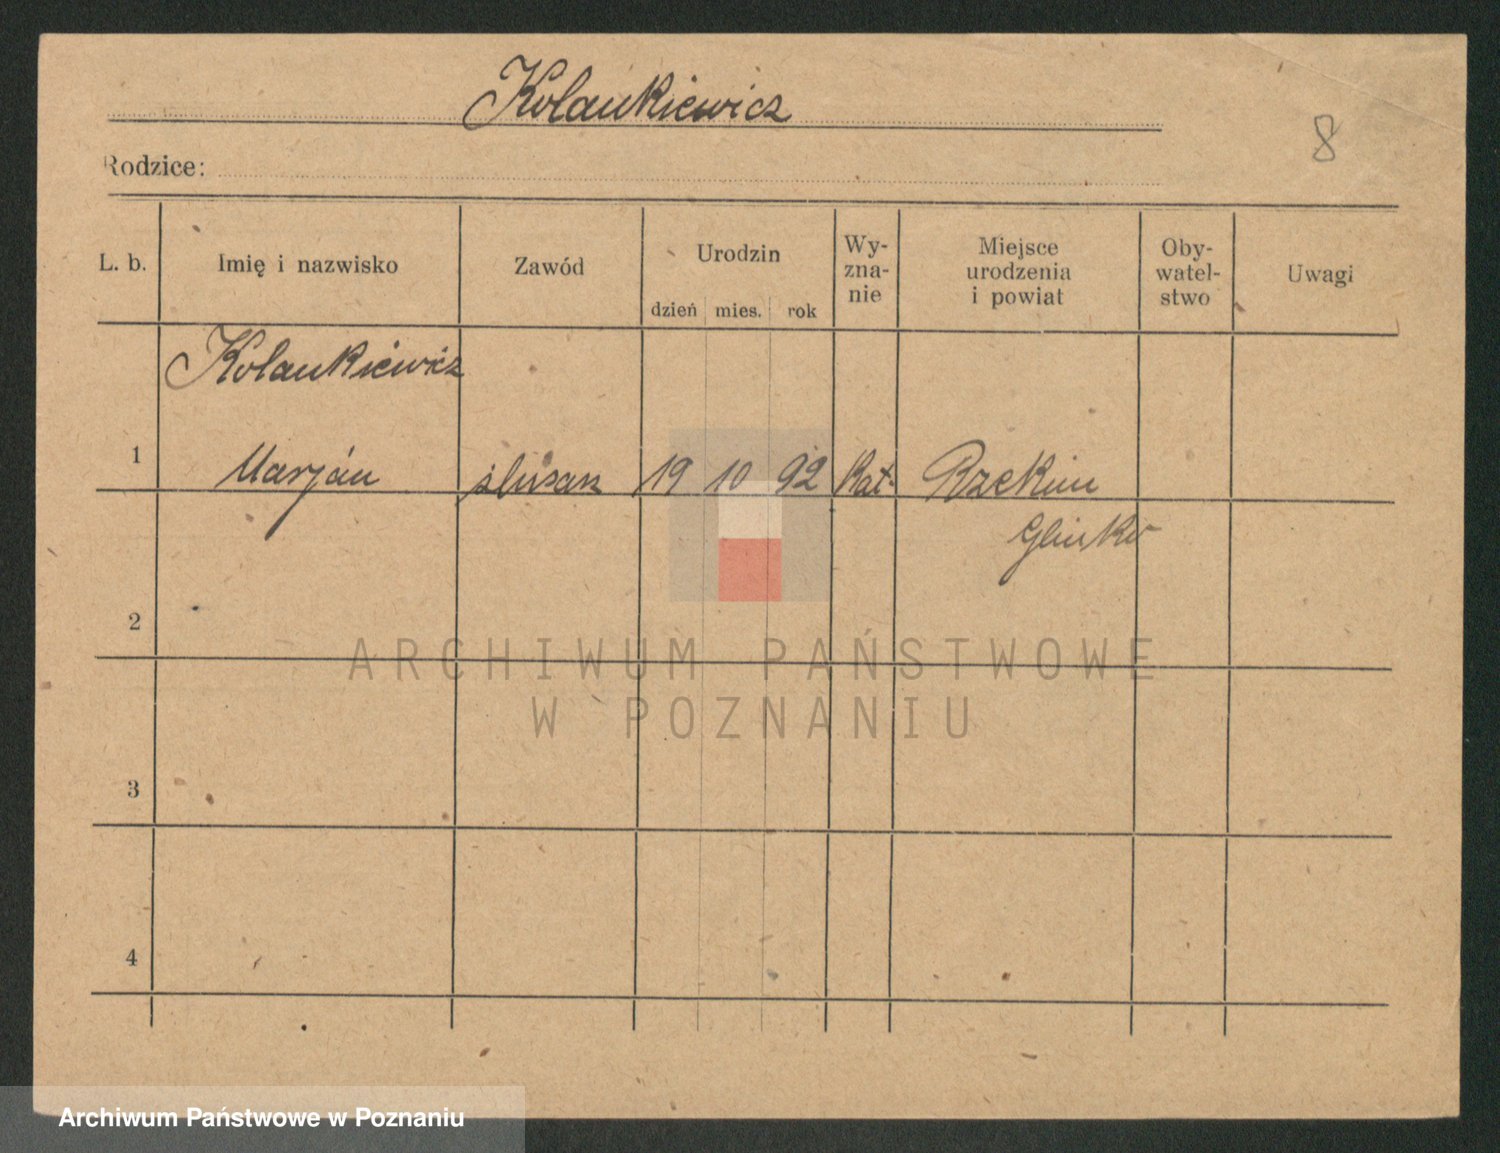 Kolankiewicz
8
Rodzice:
L. b.
Imię i nazwisko
Zawód
Urodzin
dzień mies. rok
Wy-
zna-
nie
Miejsce
urodzenia
i powiat
Oby-
watel-
stwo
Uwagi
Kolankiewicz
1 Marján ślusarz 19 10 92 kat.
2
3
4
ARCHIWUM PAŃSTWOWE
W POZNANIU
Archiwum Państwowe w Poznaniu